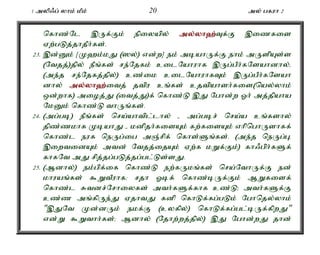 1 அலிஃப் லாம் மீம் 20 அல் பகரா 2
கொண்டே இருக்கும் நிலையில் அல்லாஹ்வுக்கு இணைகளை
ஏற்படுத்தாதீர்கள்.
23. இன்னும் (முஹம்மது (ஸல்) என்ற) நம் அடியாருக்கு நாம் அருளியுள்ள
(வேதத்)தில் நீங்கள் சந்தேகம் உடையோராக இருப்பீர்களேயானால்,
(அந்த சந்தேகத்தில்) உண்மை உடையோராகவும் இருப்பீர்களேயா
னால் அல்லாஹ்வைத் தவிர உங்கள் உதவியாளர்களை(யெல்லாம்
ஒன்றாக) அழைத்து (வைத்து)க் கொண்டு இது போன்ற ஓர் அத்தியாய
மேனும் கொண்டு வாருங்கள்.
24. (அப்படி) நீங்கள் செய்யாவிட்டால் , அப்படிச் செய்ய உங்களால்
திண்ணமாக முடியாது , மனிதர்களையும் கற்களையும் எரிபொருளாகக்
கொண்ட நரக நெருப்பை அஞ்சிக் கொள்ளுங்கள். (அந்த நெருப்பு
இறைவனையும் அவன் வேதத்தையும் ஏற்க மறுக்கும்) காஃபிர்களுக்
காகவே அது சித்தப்படுத்தப்பட்டுள்ளது.
25. (ஆனால்) நம்பிக்கை கொண்டு நற்கருமங்கள் செய்வோருக்கு நன்
மாராயங்கள் கூறுவீராக: சதா ஓடிக் கொண்டிருக்கும் ஆறுகளைக்
கொண்ட சுவனச்சோலைகள் அவர்களுக்காக உண்டு; அவர்களுக்கு
உண்ண அங்கிருந்து ஏதாவது கனி கொடுக்கப்படும் போதெல்லாம்
"இதுவே முன்னரும் நமக்கு (உலகில்) கொடுக்கப்பட்டிருக்கிறது"
என்று கூறுவார்கள்; ஆனால் (தோற்றத்தில்) இது போன்றது தான்